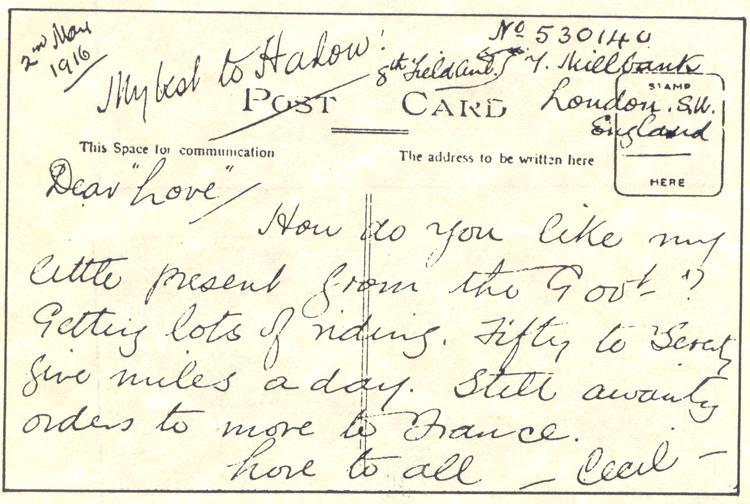 2nd May
1916
My best to Halow!
No 530140
8th Field Amb. 7. Millbank
London. S.W.
England
POST CARD
STAMP
HERE
This Space for communication
The address to be written here
Dear "Love"
How do you like my
little present from the Govt"?
Getting lots of riding. Fifty to Seventy
five miles a day. Still awaiting
orders to move to France.
Love to all – Cecil –